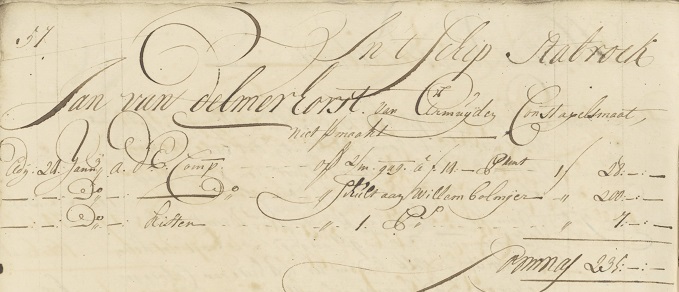 37
In't Schip Stabroek
Jan van Delmerhorst van Arnmuyden Constapelsmaat
niet gemaakt
Ady. 24. Janny. a. d' E. Comp. op 2/m. gage â f 14.— P mt " f 28:—:—
—:— Do —:— Do " Schult aan Willem Colmijer — " 200:—:—
—:— Do — kisten " 1. Ps " 7:—:—
Somma f 235:—:—